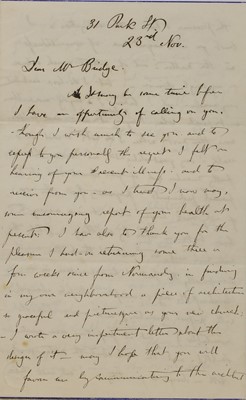 31 Park St.
23rd Nov.
Dear Mr Bridge.
It may be some time before
I have an opportunity of calling on you,
though I wish much to see you and to
express to you personally the regret I felt on
hearing of your recent illness. and to
receive from you - as I trust I now may,
some encouraging report of your health at
present. I have also to thank you for the
pleasure I had on returning some three or
four weeks since from Normandy in finding
in my own neighbourhood a piece of architecture
so graceful and picturesque as your own church:
I wrote a very important letter about the
design of it - may I hope that you will
favour me by communicating to the architect